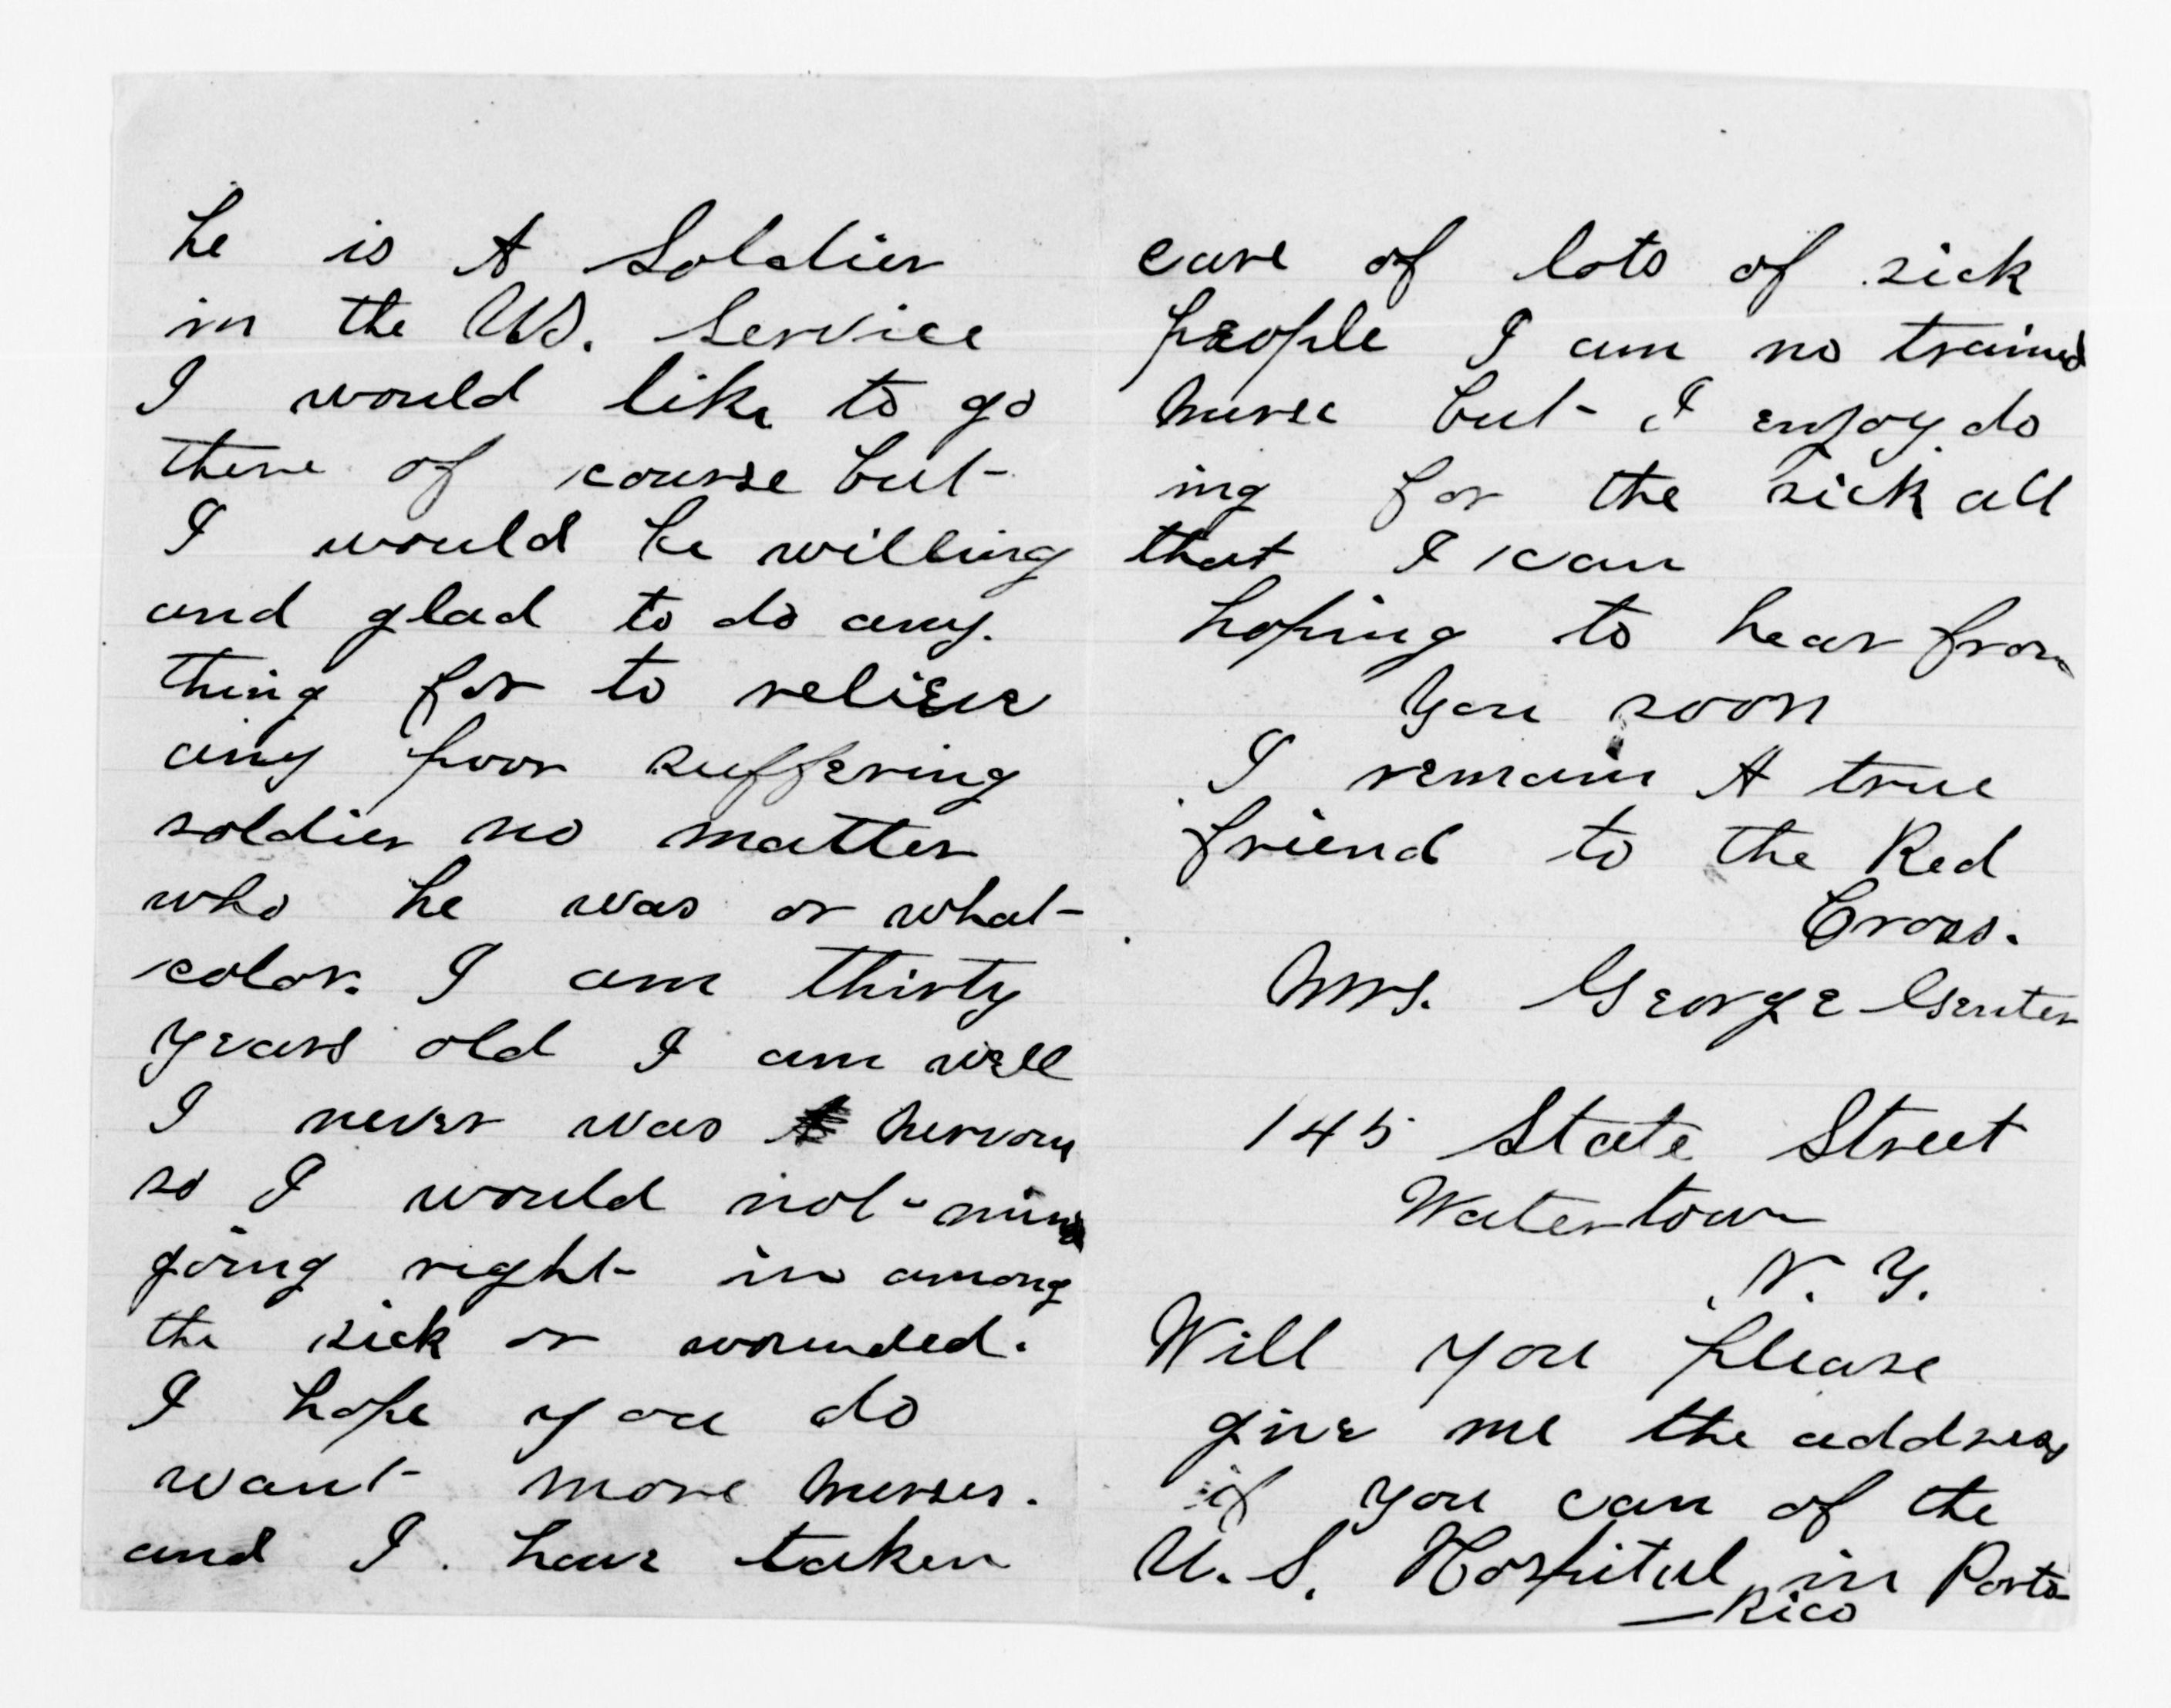 he is A Soldier
in the U.S. Service
I would like to go
there of course but
I would be willing
and glad to do any.
thing for to relieve
any poor suffering
soldier no matter
who he was or what
color. I am thirty
years old I am well
I never was nervous
so I would not mind
going right in among
the sick or wounded.
I hope you do
want more nurses.
and I have taken
care of lots of sick
people I am no trained
nurse but I enjoy do
ing for the sick all
that I can
hoping to hear from
you soon
I remain A true
friend to the Red
Cross.
Mrs. George Genter
145 State Street
Watertown
N. Y.
Will you please
give me the address
if you can of the
U. S. Hospital in Porto
Rico